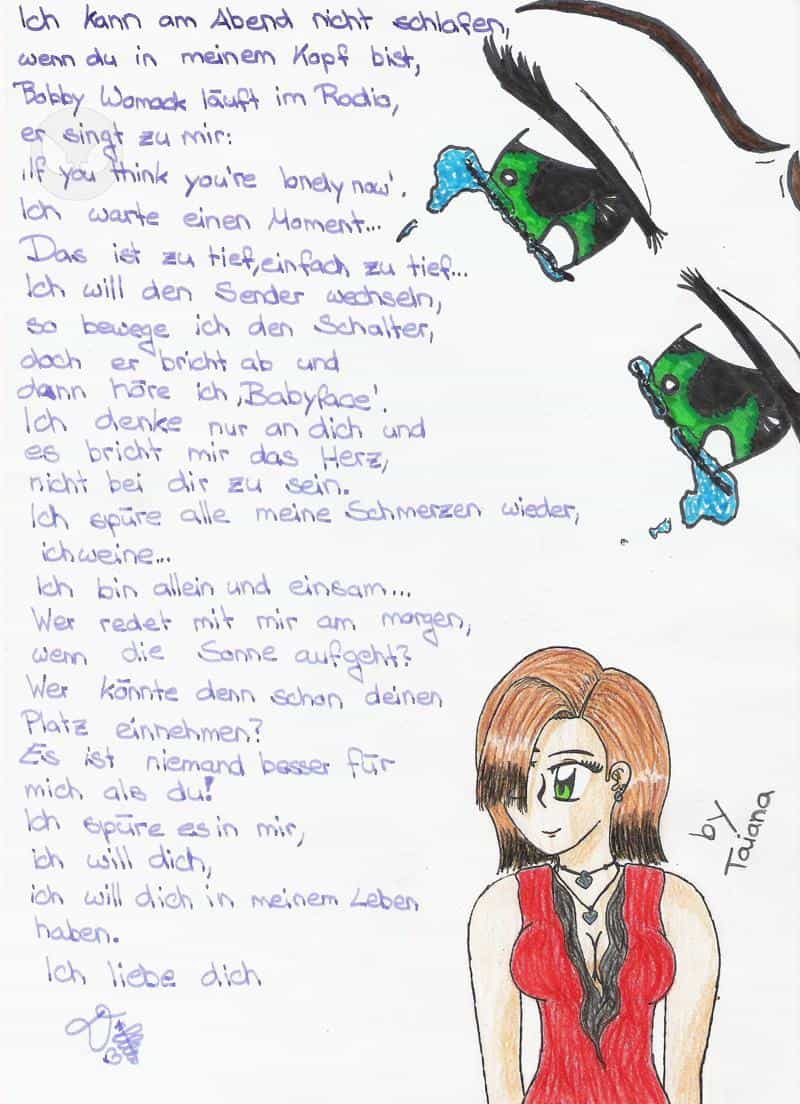 Ich kann am Abend nicht schlafen,
wenn du in meinem Kopf bist,
Bobby Womack läuft im Radio,
er singt zu mir:
‚If you think you're lonely now'.
Ich warte einen Moment...
Das ist zu tief, einfach zu tief...
Ich will den Sender wechseln,
so bewege ich den Schalter,
doch er bricht ab und
dann höre ich ‚Babyface'.
Ich denke nur an dich und
es bricht mir das Herz,
nicht bei dir zu sein.
Ich spüre alle meine Schmerzen wieder,
ich weine...
Ich bin allein und einsam...
Wer redet mit mir am morgen,
wenn die Sonne aufgeht?
Wer könnte denn schon deinen
Platz einnehmen?
Es ist niemand besser für
mich als du!
Ich spüre es in mir,
ich will dich,
ich will dich in meinem Leben
haben.
Ich liebe dich
by
Taiana